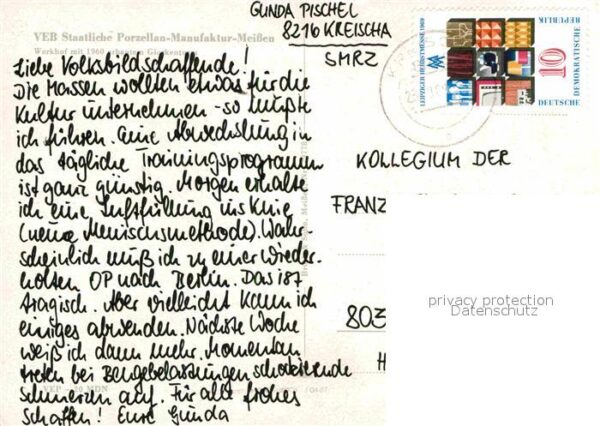 GUNDA PISCHEL
8216 KREISCHA
SMRZ
VEB Staatliche Porzellan-Manufaktur-Meißen
Werkhof mit 1960 erbautem Glockenturm
Liebe Volksbildschaffende!
Die Massen wollten etwas für die
Kultur unternehmen - so mußte
ich führen. Eine Abwechslung in
das tägliche Trainingsprogramm
ist ganz günstig. Morgen erhalte
ich eine Luftfüllung ins Knie
(neue Meniscusmethode). Wahr-
scheinlich muß ich zu einer wieder-
holten OP nach Berlin. Das ist
tragisch. Aber vielleicht kann ich
einiges abwenden. Nächste Woche
weiß ich dann mehr. Momentan
treten bei Beugebelastungen schockierende
Schmerzen auf. Für alle frohes
Schaffen! Eure Gunda
VEP MDN
KOLLEGIUM DER
FRANZ
803
H
LEIPZIGER HERBSTMESSE 1969
MM
10
DEUTSCHE
DEMOKRATISCHE
REPUBLIK
privacy protection
Datenschutz